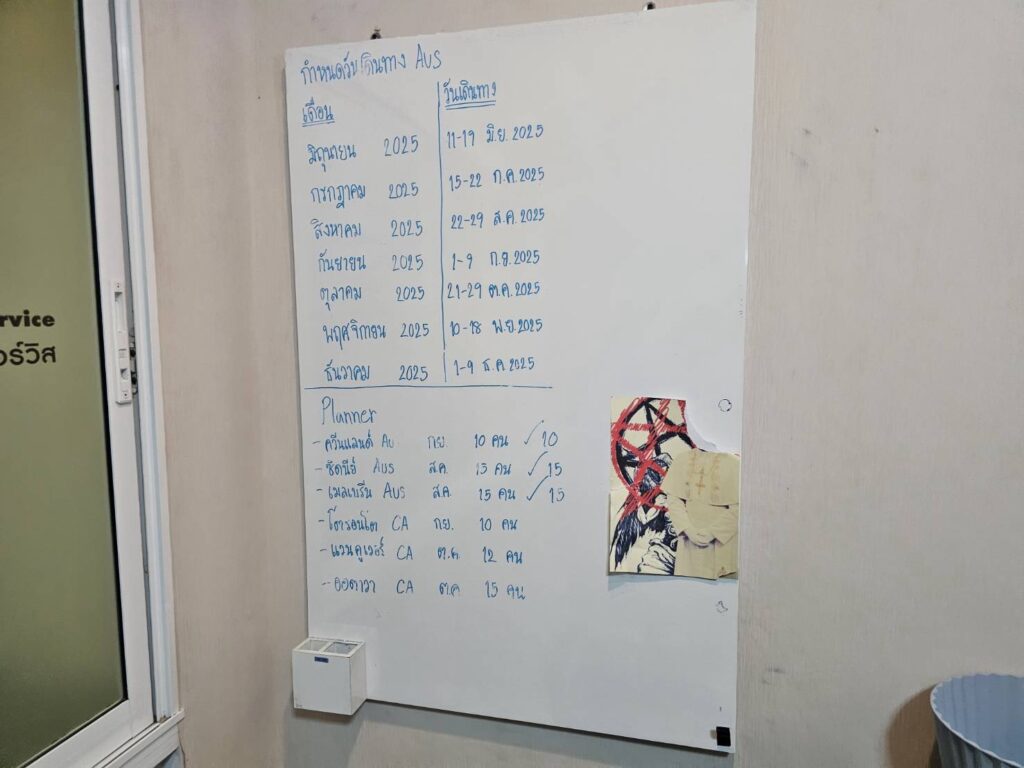 กำหนดวันเดินทาง Aus
เดือน วันเดินทาง
มิถุนายน 2025 11-19 มิ.ย. 2025
กรกฎาคม 2025 15-22 ก.ค. 2025
สิงหาคม 2025 22-29 ส.ค. 2025
กันยายน 2025 1-9 ก.ย. 2025
ตุลาคม 2025 21-29 ต.ค. 2025
พฤศจิกายน 2025 10-18 พ.ย. 2025
ธันวาคม 2025 1-9 ธ.ค. 2025
Planner
- ควีนแลนด์ Au ก.ย. 10 คน ✓ 10
- ซิดนีย์ Aus ส.ค. 15 คน ✓ 15
- เมลเบริน Aus ส.ค. 15 คน ✓ 15
- โตรอนโต CA ก.ย. 10 คน
- แวนคูเวอร์ CA ต.ค. 12 คน
- ออตาวา CA ต.ค 15 คน
rvice
อร์วิส